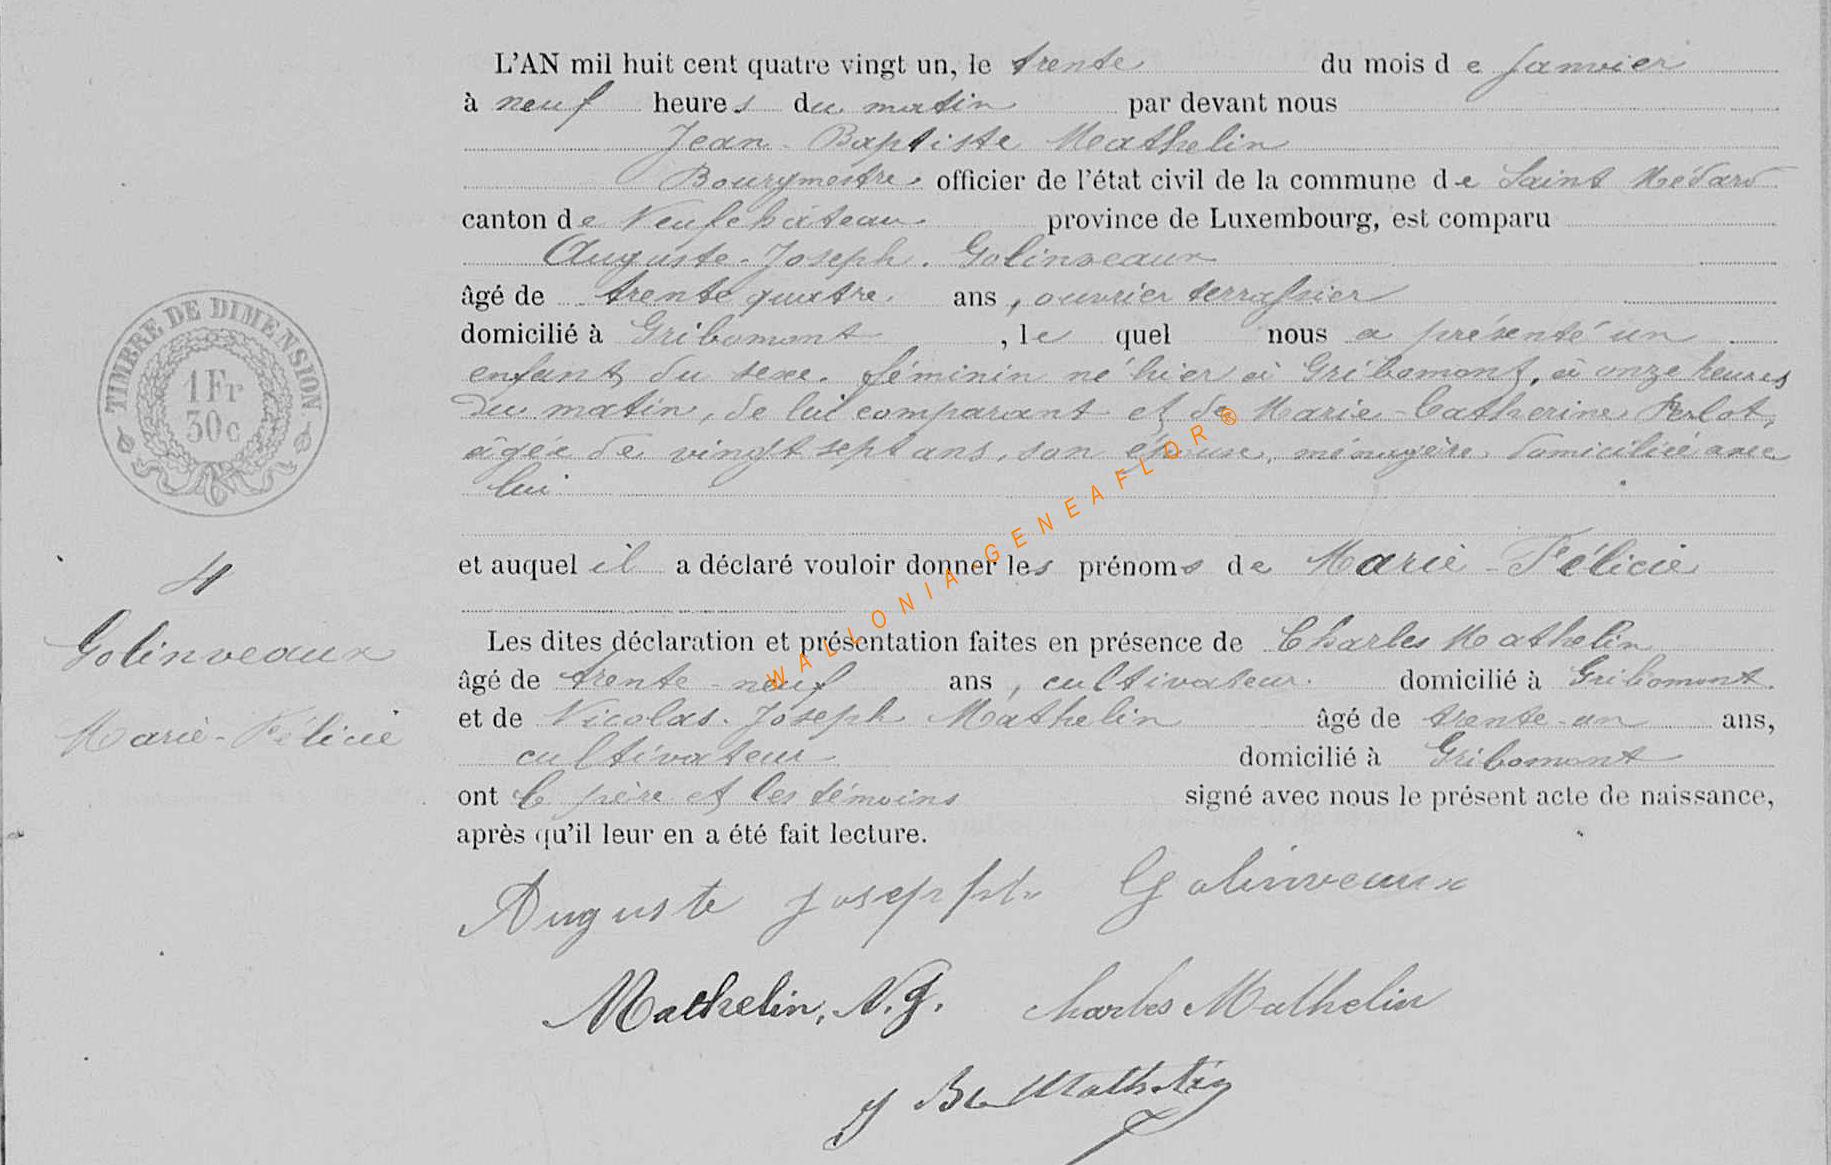 L'AN mil huit cent quatre vingt un, le trente du mois de Janvier
à neuf heures du matin par devant nous
Jean-Baptiste Mathelin
Bourgmestre, officier de l'état civil de la commune de Saint Médard
canton de Neufchâteau province de Luxembourg, est comparu
Auguste-Joseph Golinveaux
âgé de trente quatre ans, ouvrier terrassier
domicilié à Gribomont, lequel nous a présenté un
enfant du sexe féminin né hier à Gribomont, à onze heures
du matin, de lui comparant et de Marie-Catherine Perlot,
âgée de vingt sept ans, son épouse, ménagère, domiciliée avec
lui
et auquel il a déclaré vouloir donner les prénoms de Marie-Félicie
Les dites déclaration et présentation faites en présence de Charles Mathelin
âgé de trente-neuf ans, cultivateur domicilié à Gribomont.
et de Nicolas-Joseph Mathelin âgé de trente-un ans,
cultivateur domicilié à Gribomont
ont le père et les témoins signé avec nous le présent acte de naissance,
après qu'il leur en a été fait lecture.
Auguste Joseph Golinveaux
Mathelin, N. J. Charles Mathelin
J Bte Mathelin
TIMBRE DE DIMENSION
1 Fr
30c
4
Golinveaux
Marie-Félicie
WALLONIA-GENEAFLOR®